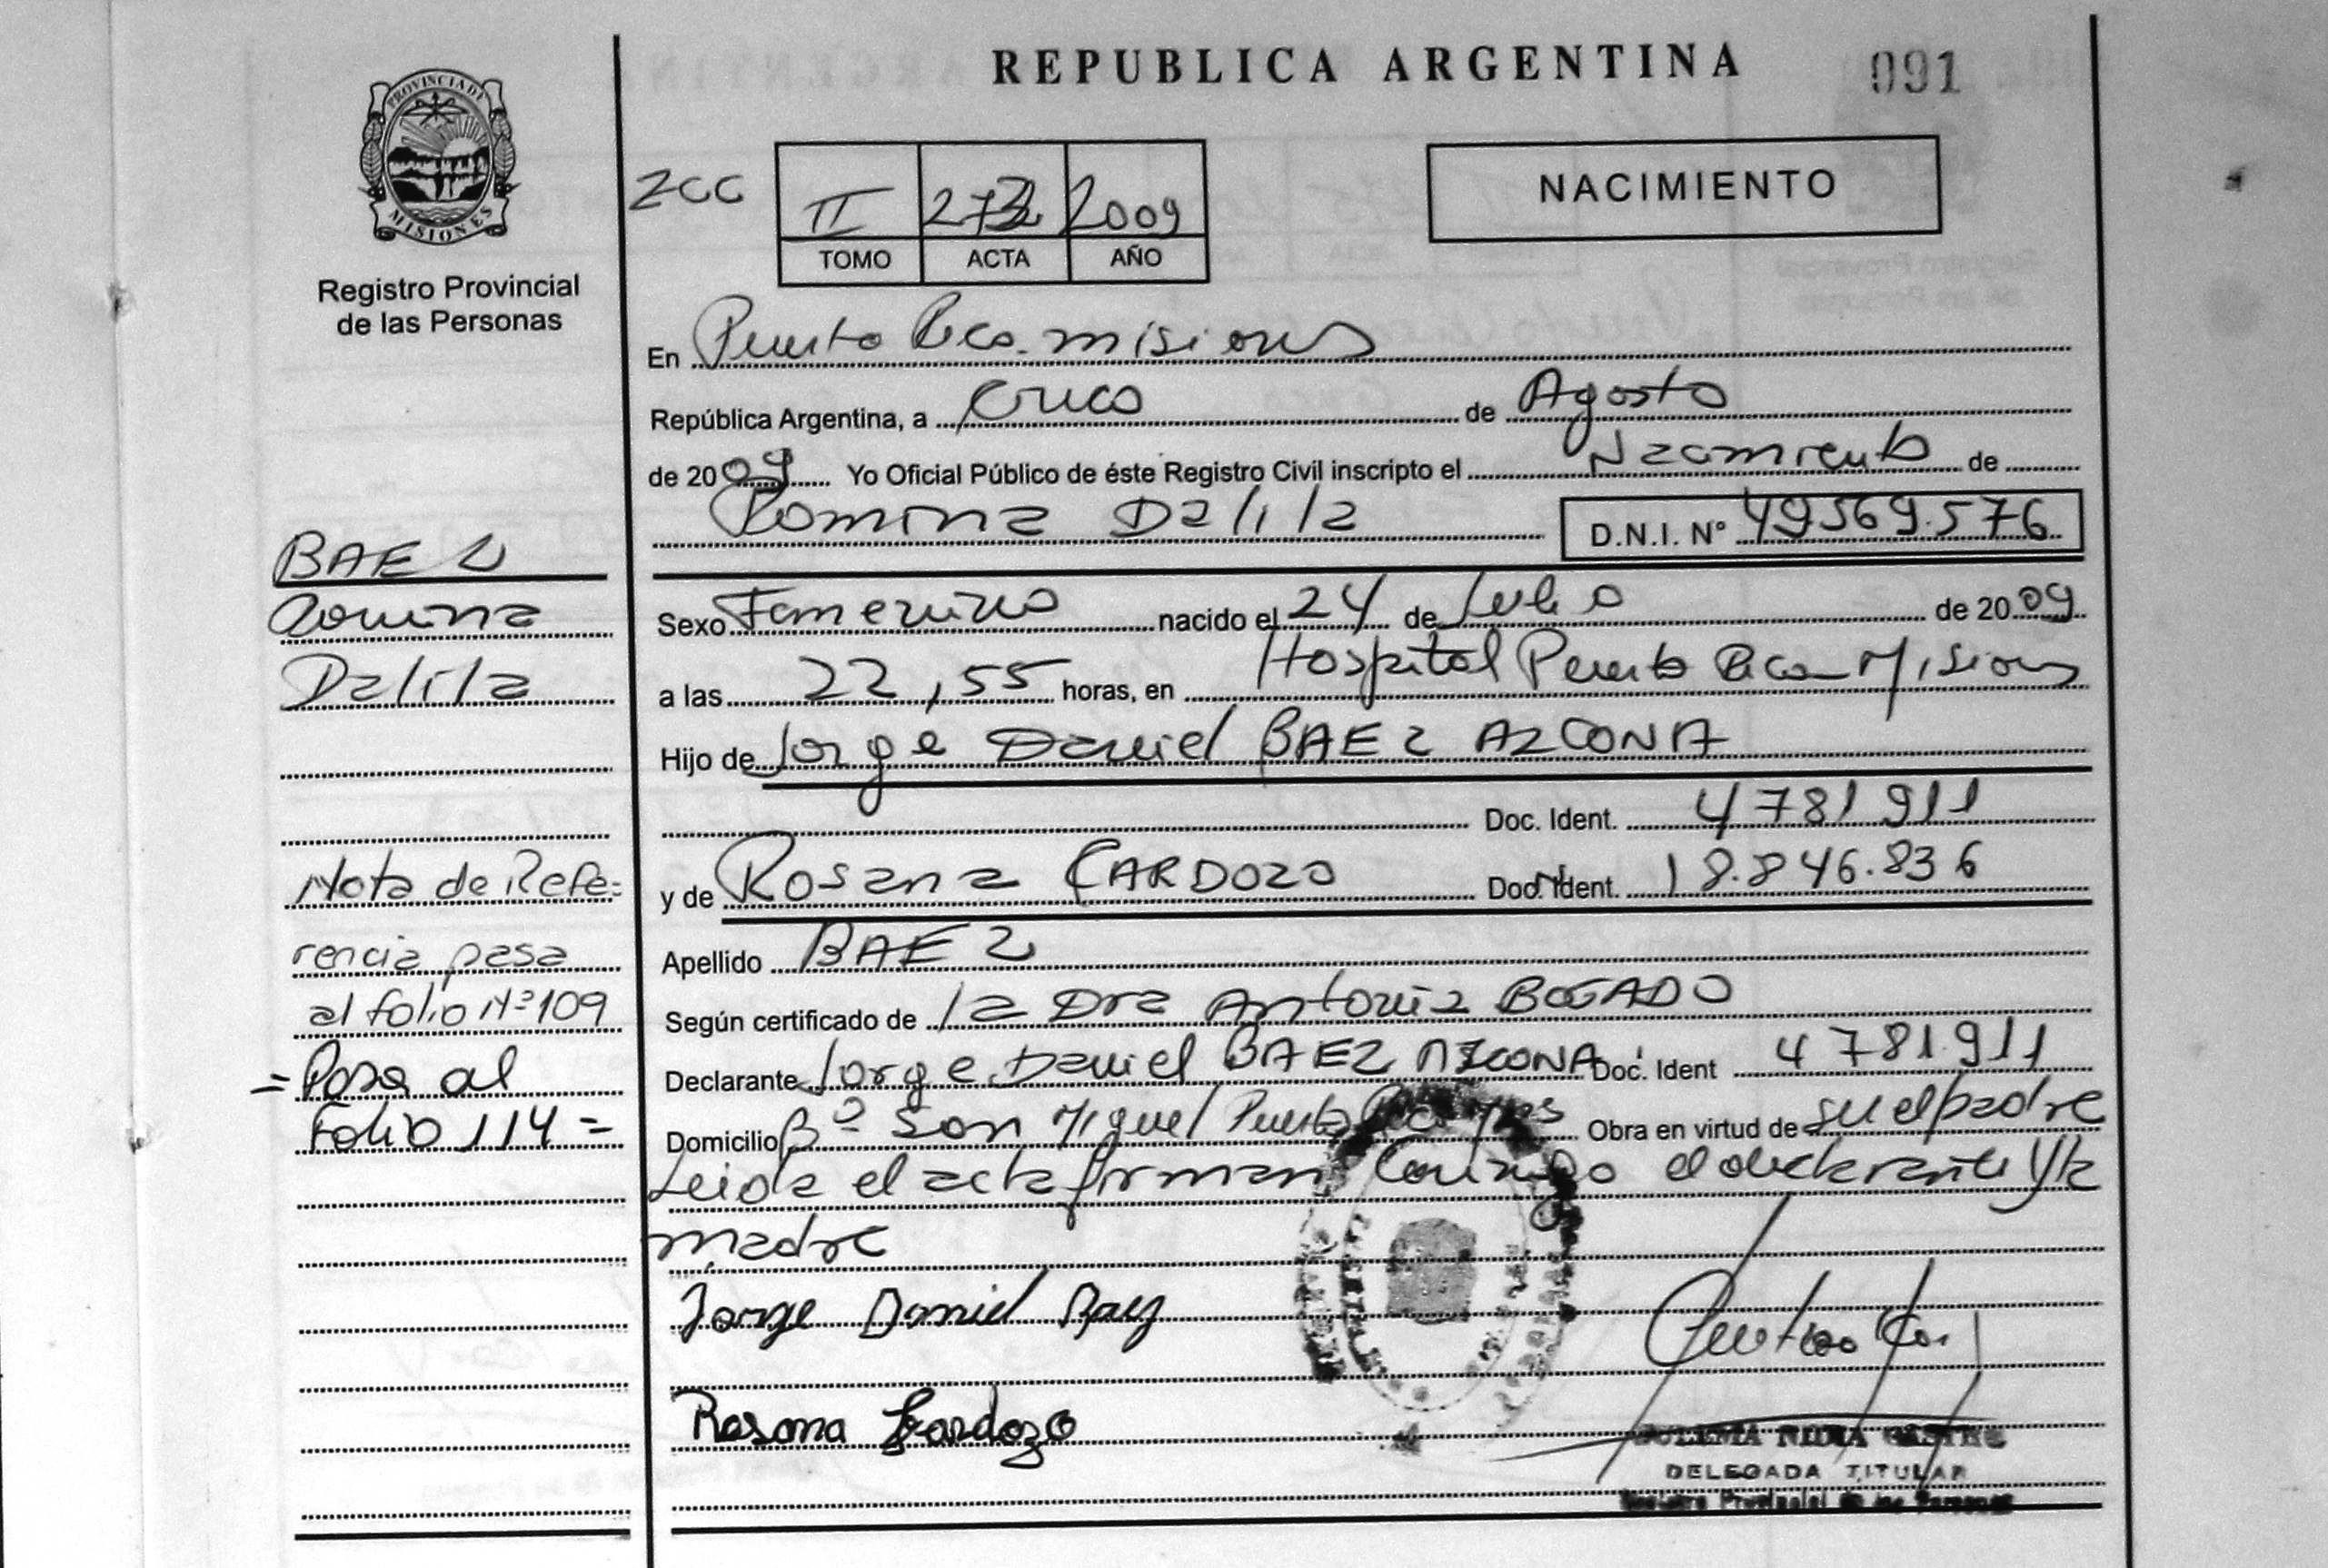 REPUBLICA ARGENTINA
091
PROVINCIA DE
MISIONES
Registro Provincial
de las Personas
II 2009
TOMO ACTA AÑO
NACIMIENTO
En Puerto Rico. misiones
República Argentina, a cinco de Agosto
de 2009 Yo Oficial Público de éste Registro Civil inscripto el Nacimiento de
Romina Dalila
D.N.I. Nº 49569.576
BAEZ
Romina
Dalila
Nota de Refe=
rencia pasa
al folio Nº 109
= Pasa al
Folio 114 =
Sexo Femenino nacido el 24 de Julio de 2009
a las 22,55 horas, en Hospital Puerto Rico Misiones
Hijo de Jorge Daniel BAEZ AZCONA
Doc. Ident. 4781911
y de Rosana CARDOZO Doc. Ident. 18.846.836
Apellido BAEZ
Según certificado de la Dra Antonia BOGADO
Declarante Jorge Daniel BAEZ AZCONA Doc. Ident 4781911
Domicilio Bº San Miguel Puerto Rico Mnes Obra en virtud de su el padre
Leida el acta firman conmigo el declarante y la
madre
Jorge Daniel Baez
Rosana Cardozo
DELEGADA TITULAR
Registro Provincial de las Personas